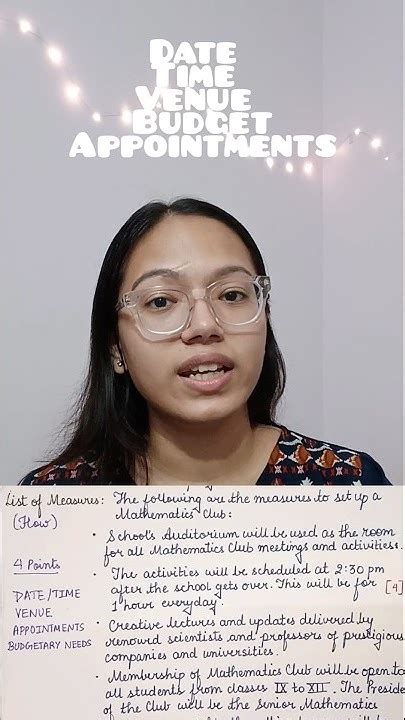 DATE
TIME
VENUE
BUDGET
APPOINTMENTS
List of Measures: The following are the measures to set up a
(How) Mathematics Club:
• School's Auditorium will be used as the room
for all Mathematics Club meetings and activities.
4 Points
• The activities will be scheduled at 2:30 pm
after the school gets over. This will be for [4]
1 hour everyday.
DATE/TIME
VENUE
APPOINTMENTS
BUDGETARY NEEDS
• Creative lectures and updates delivered by
renowed scientists and professors of prestigious
companies and universities.
• Membership of Mathematics Club will be open to
all students from classes IX to XII. The Preside
of the Club will be the Senior Mathematics